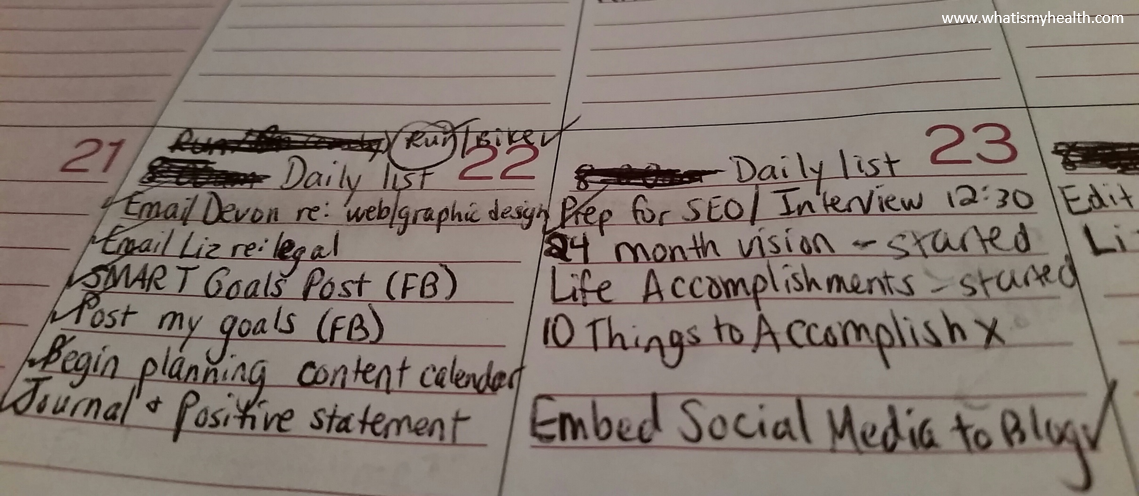 www.whatismyhealth.com
21
Run (Run)/Bike ✓
22
Daily list
✓ Email Devon re: web/graphic design
✓ Email Liz re: legal
✓ SMART Goals Post (FB)
✓ Post my goals (FB)
✓ Begin planning content calendar
✓ Journal + Positive statement
23
Daily list
Prep for SEO/Interview 12:30
24 month vision - started
Life Accomplishments - started
10 Things to Accomplish X
Embed Social Media to Blog ✓
Edit
Li